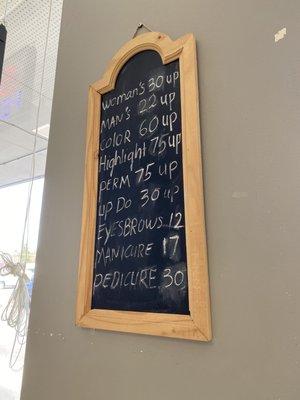 woman's 30 up
MAN'S 22 up
COLOR 60 up
Highlight 75 up
PERM 75 up
up Do 30 up
EYESBROWS 12
MANICURE 17
PEDICURE 30